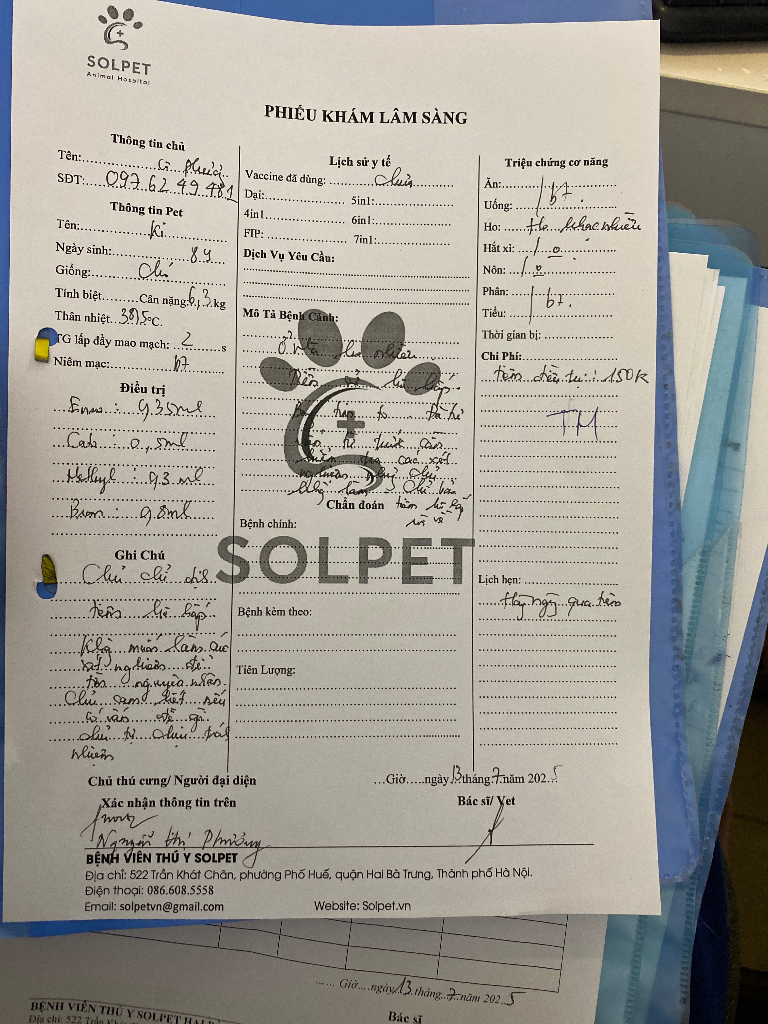 SOLPET
Animal Hospital
PHIẾU KHÁM LÂM SÀNG
Thông tin chủ
Tên: C Phượng
SĐT: 097 62 49 481
Thông tin Pet
Tên: Ki
Ngày sinh: 8y
Giống: Chó
Tính biệt Cân nặng: 6,3 kg
Thân nhiệt 38,5°C.
TG lấp đầy mao mạch: 2 s
Niêm mạc: bt
Điều trị
: 0,35ml
Cata: 0,5ml
Methyl: 0,3 ml
Brom: 0,8ml
Ghi Chú
Chủ chỉ
tiêm hô hấp
Khg muốn làm các
xét nghiệm để
tìm nguyên nhân.
Chủ cam kết nếu
có vấn đề gì
chủ tự chịu trách
nhiệm
Lịch sử y tế
Vaccine đã dùng: chưa
Dại: 5in1:
4in1 6in1:
FTP: 7in1:
Dịch Vụ Yêu Cầu:
Mô Tả Bệnh Cảnh:
Ở nhà ho nhiều
hô hấp
to
cần
kiểm tra các xét
nghiệm nhg chủ
khg làm chủ
Chẩn đoán tiêm hô hấp
về
Bệnh chính:
SOLPET
Bệnh kèm theo:
Tiên Lượng:
Triệu chứng cơ năng
Ăn:
Uống: bt
Ho: Ho khạc nhiều
Hắt xì: 0
Nôn: 0
Phân:
Tiểu: bt.
Thời gian bị:
Chi Phí:
tiêm điều trị: 150k
TM
Lịch hẹn:
Hàng ngày qua tiêm
Chủ thú cưng/ Người đại diện
Xác nhận thông tin trên
Nguyễn thị Phượng
...Giờ.....ngày 13 tháng 7 năm 2025
Bác sĩ/ Vet
BỆNH VIÊN THÚ Y SOLPET
Địa chỉ: 522 Trần Khát Chân, phường Phố Huế, quận Hai Bà Trưng, Thành phố Hà Nội.
Điện thoại: 086.608.5558
Email: solpetvn@gmail.com Website: Solpet.vn
...... Giờ....ngày 13 tháng 7 năm 2025
BỆNH VIÊN THÚ Y SOLPET HAI B
Địa chỉ: 522 Trần Khát
Bác sĩ